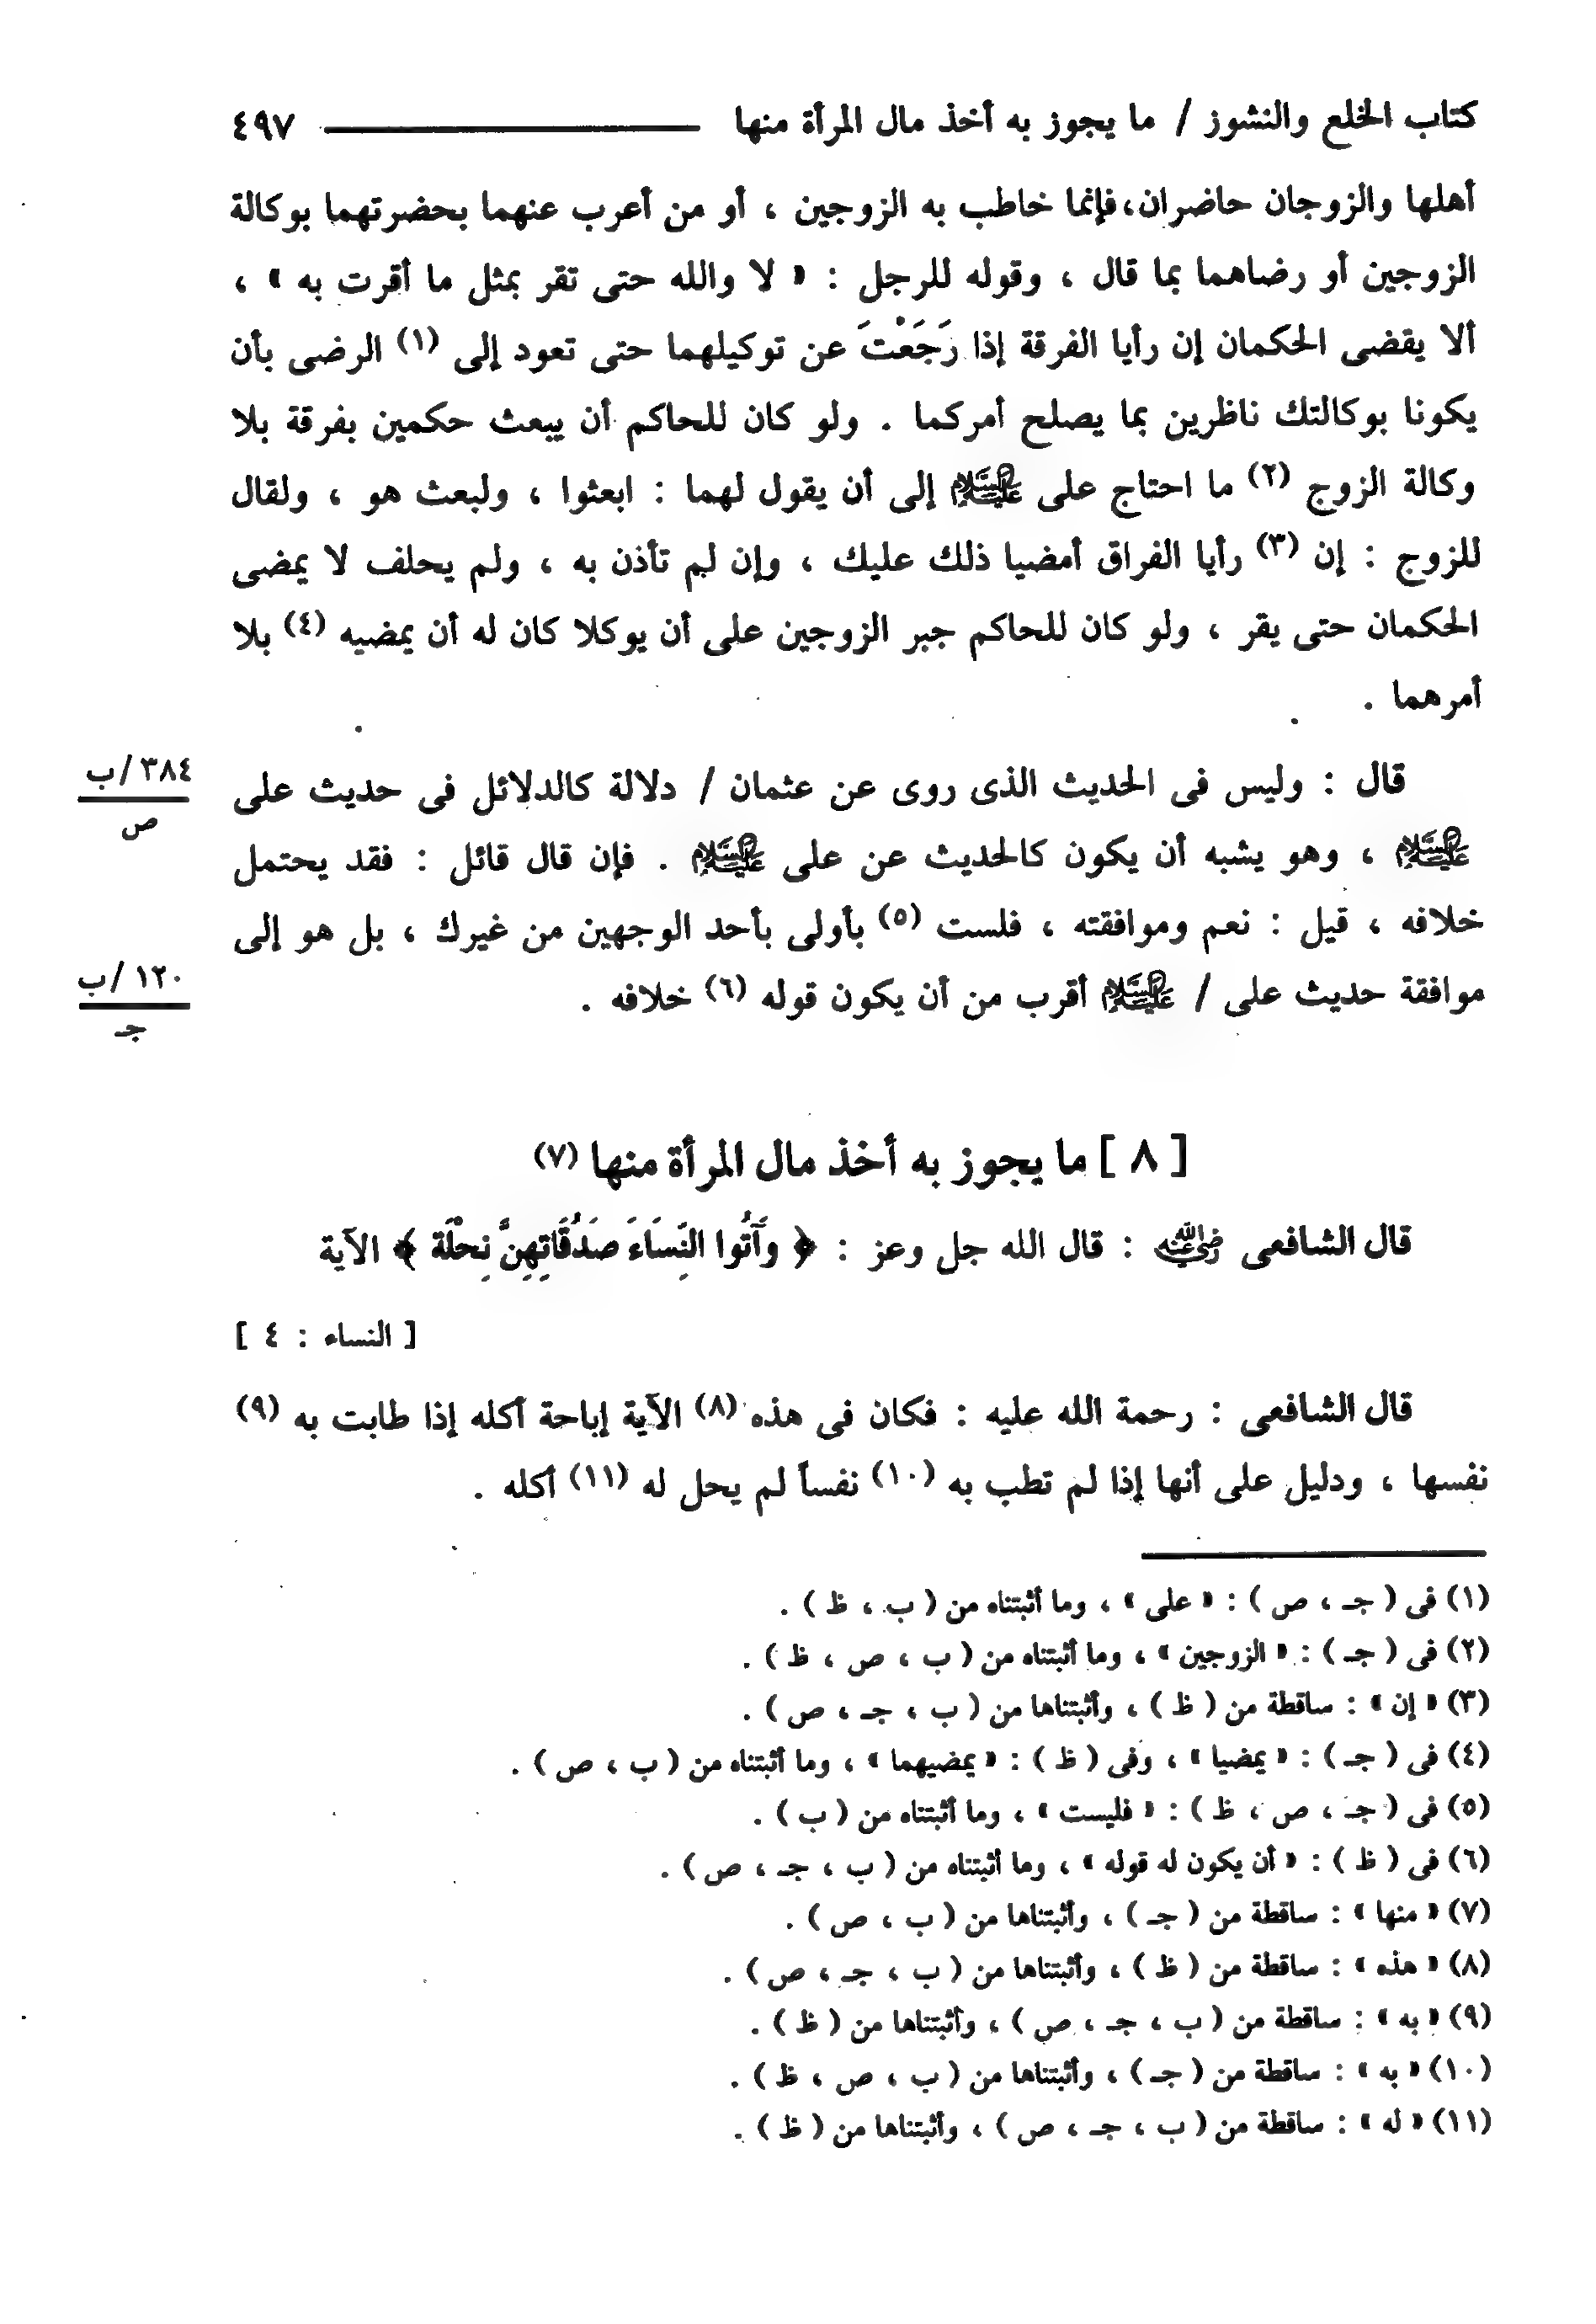 كتاب الخلع والنشوز / ما يجوز به أخذ مال المرأة منها ٤٩٧
أهلها والزوجان حاضران، فإنما خاطب به الزوجين ، أو من أعرب عنهما بحضرتهما بوكالة
الزوجين أو رضاهما بما قال ، وقوله للرجل : « لا والله حتى تقر بمثل ما أقرت به » ،
ألا يقضى الحكمان إن رأيا الفرقة إذا رَجَعْتَ عن توكيلهما حتى تعود إلى (١) الرضى بأن
يكونا بوكالتك ناظرين بما يصلح أمركما . ولو كان للحاكم أن يبعث حكمين بفرقة بلا
وكالة الزوج (٢) ما احتاج على عليه السلام إلى أن يقول لهما : ابعثوا ، ولبعث هو ، ولقال
للزوج : إن (٣) رأيا الفراق أمضيا ذلك عليك ، وإن لم تأذن به ، ولم يحلف لا يمضى
الحكمان حتى يقر ، ولو كان للحاكم جبر الزوجين على أن يوكلا كان له أن يمضيه (٤) بلا
أمرهما .
قال : وليس فى الحديث الذى روى عن عثمان / دلالة كالدلائل فى حديث على
٣٨٤ /ب
ص
عليه السلام ، وهو يشبه أن يكون كالحديث عن على عليه السلام . فإن قال قائل : فقد يحتمل
خلافه ، قيل : نعم وموافقته ، فلست (٥) بأولى بأحد الوجهين من غيرك ، بل هو إلى
موافقة حديث على / عليه السلام أقرب من أن يكون قوله (٦) خلافه .
١٢٠ /ب
جـ
[ ٨ ] ما يجوز به أخذ مال المرأة منها (٧)
قال الشافعى رضي الله عنه : قال الله جل وعز : ﴿ وَآتُوا النِّسَاءَ صَدُقَاتِهِنَّ نِحْلَة ﴾ الآية
[ النساء : ٤ ]
قال الشافعى : رحمة الله عليه : فكان فى هذه (٨) الآية إباحة أكله إذا طابت به (٩)
نفسها ، ودليل على أنها إذا لم تطب به (١٠) نفساً لم يحل له (١١) أكله .
(١) فى ( جـ ، ص ) : « على » ، وما أثبتناه من ( ب ، ظ ) .
(٢) فى ( جـ ) : « الزوجين » ، وما أثبتناه من ( ب ، ص ، ظ ) .
(٣) « إن » : ساقطة من ( ظ ) ، وأثبتناها من ( ب ، جـ ، ص ) .
(٤) فى ( جـ ) : « يمضيا » ، وفى ( ظ ) : « يمضيهما » ، وما أثبتناه من ( ب ، ص ) .
(٥) فى ( جـ ، ص ، ظ ) : « فليست » ، وما أثبتناه من ( ب ) .
(٦) فى ( ظ ) : « أن يكون له قوله » ، وما أثبتناه من ( ب ، جـ ، ص ) .
(٧) « منها » : ساقطة من ( جـ ) ، وأثبتناها من ( ب ، ص ) .
(٨) « هذه » : ساقطة من ( ظ ) ، وأثبتناها من ( ب ، جـ ، ص ) .
(٩) « به » : ساقطة من ( ب ، جـ ، ص ) ، وأثبتناها من ( ظ ) .
(١٠) « به » : ساقطة من ( جـ ) ، وأثبتناها من ( ب ، ص ، ظ ) .
(١١) « له » : ساقطة من ( ب ، جـ ، ص ) ، وأثبتناها من ( ظ ) .